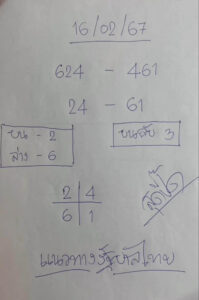 16/02/67
624 - 461
24 - 61
บน - 2
ล่าง - 6
บนสิบ 3
2 4
6 1
แนวทางรัฐบาลไทย